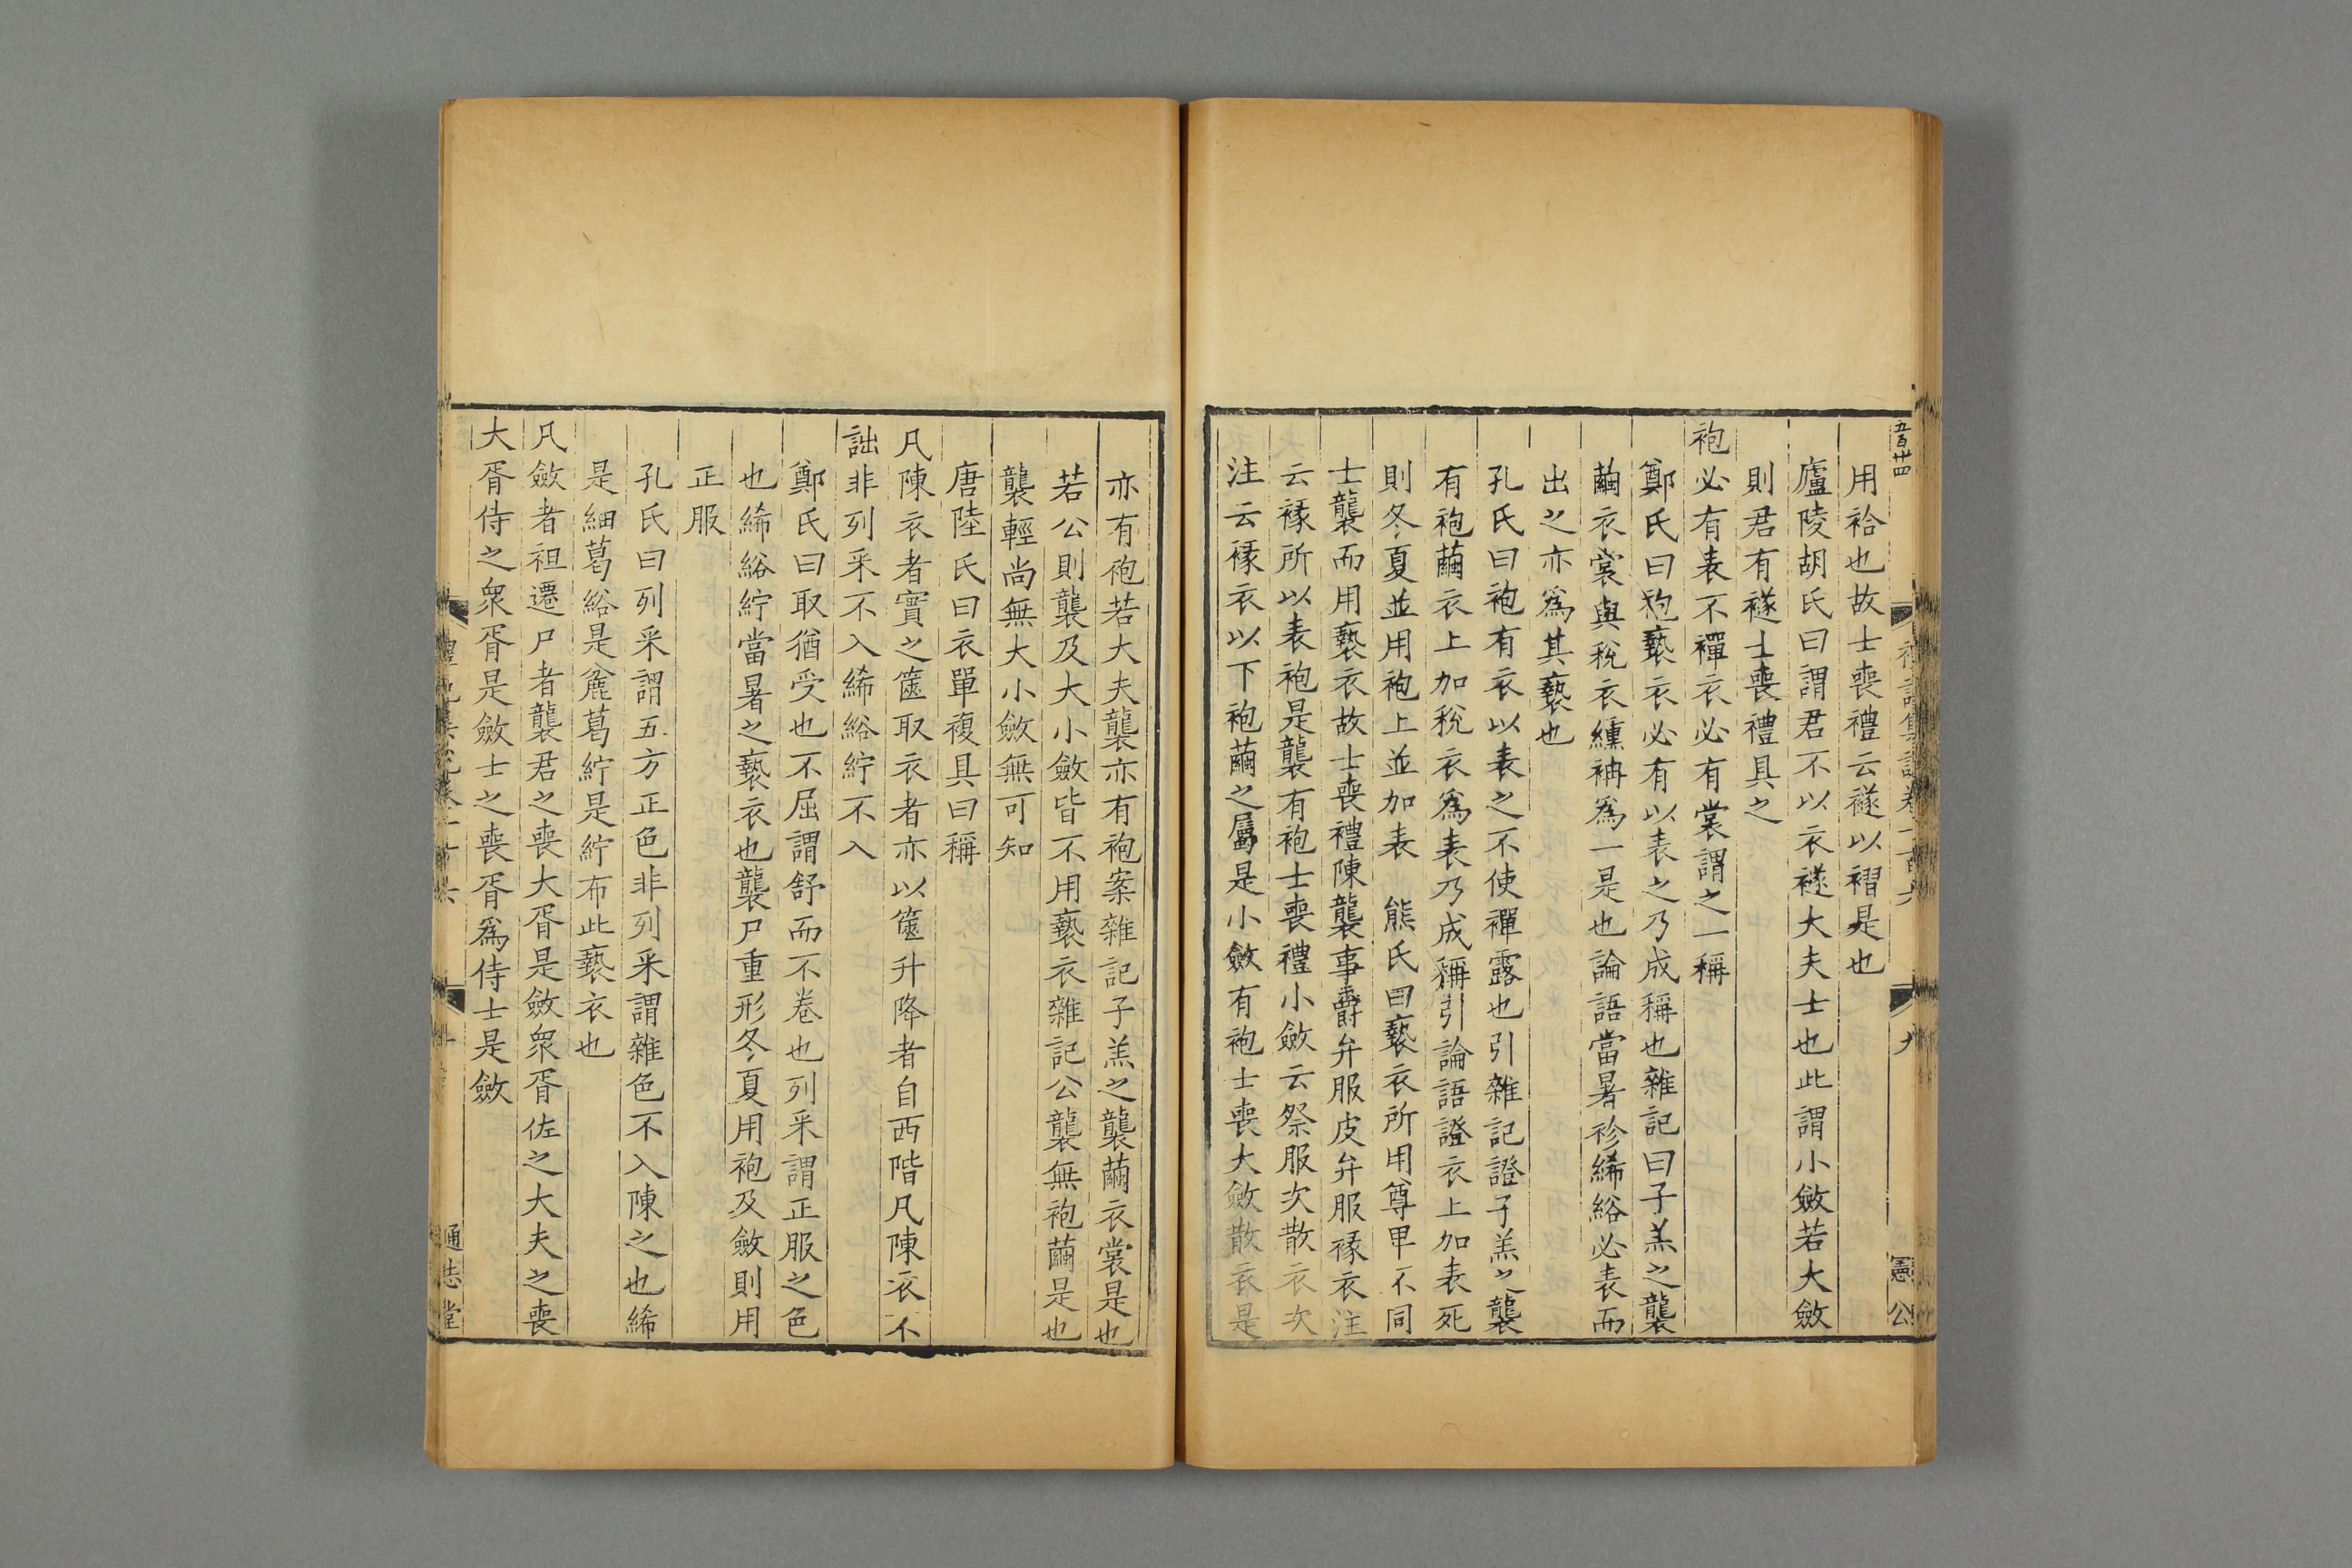 五百卌四
用袷也故士喪禮云襚以褶是也
廬陵胡氏曰謂君不以衣襚大夫士也此謂小斂若大斂
則君有襚士喪禮具之
袍必有表不襌衣必有裳謂之一稱
鄭氏曰袍褻衣必有以表之乃成稱也雜記曰子羔之襲
繭衣裳與稅衣纁袡爲一是也論語當暑袗絺綌必表而
出之亦爲其褻也
孔氏曰袍有衣以表之不使襌露也引雜記證子羔之襲
有袍繭衣上加稅衣爲表乃成稱引論語證衣上加表死
則冬夏並用袍上並加表　熊氏曰褻衣所用尊卑不同
士襲而用褻衣故士喪禮陳襲事爵弁服皮弁服褖衣注
云褖所以表袍是襲有袍士喪禮小斂云祭服次散衣次
注云褖衣以下袍繭之屬是小斂有袍士喪大斂散衣是
憲公
亦有袍若大夫襲亦有袍案雜記子羔之襲繭衣裳是也
若公則襲及大小斂皆不用褻衣雜記公襲無袍繭是也
襲輕尚無大小斂無可知
唐陸氏曰衣單複具曰稱
凡陳衣者實之篋取衣者亦以篋升降者自西階凡陳衣不
詘非列采不入絺綌紵不入
鄭氏曰取猶受也不屈謂舒而不卷也列采謂正服之色
也絺綌紵當暑之褻衣也襲尸重形冬夏用袍及斂則用
正服
孔氏曰列采謂五方正色非列采謂雜色不入陳之也絺
是細葛綌是麄葛紵是紵布此褻衣也
凡斂者袒遷尸者襲君之喪大胥是斂衆胥佐之大夫之喪
大胥侍之衆胥是斂士之喪胥爲侍士是斂
通志堂